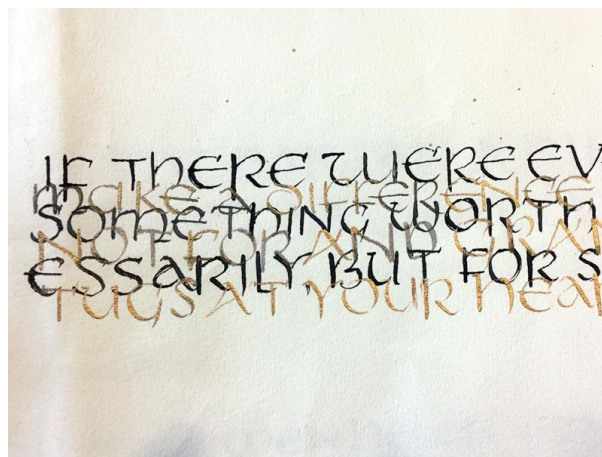 IF THERE WERE EV
MAKE A DIFFERENCE
SOMETHING WORTH
NOT FOR
ESSARILY, BUT FOR S
TUGS AT YOUR HEA